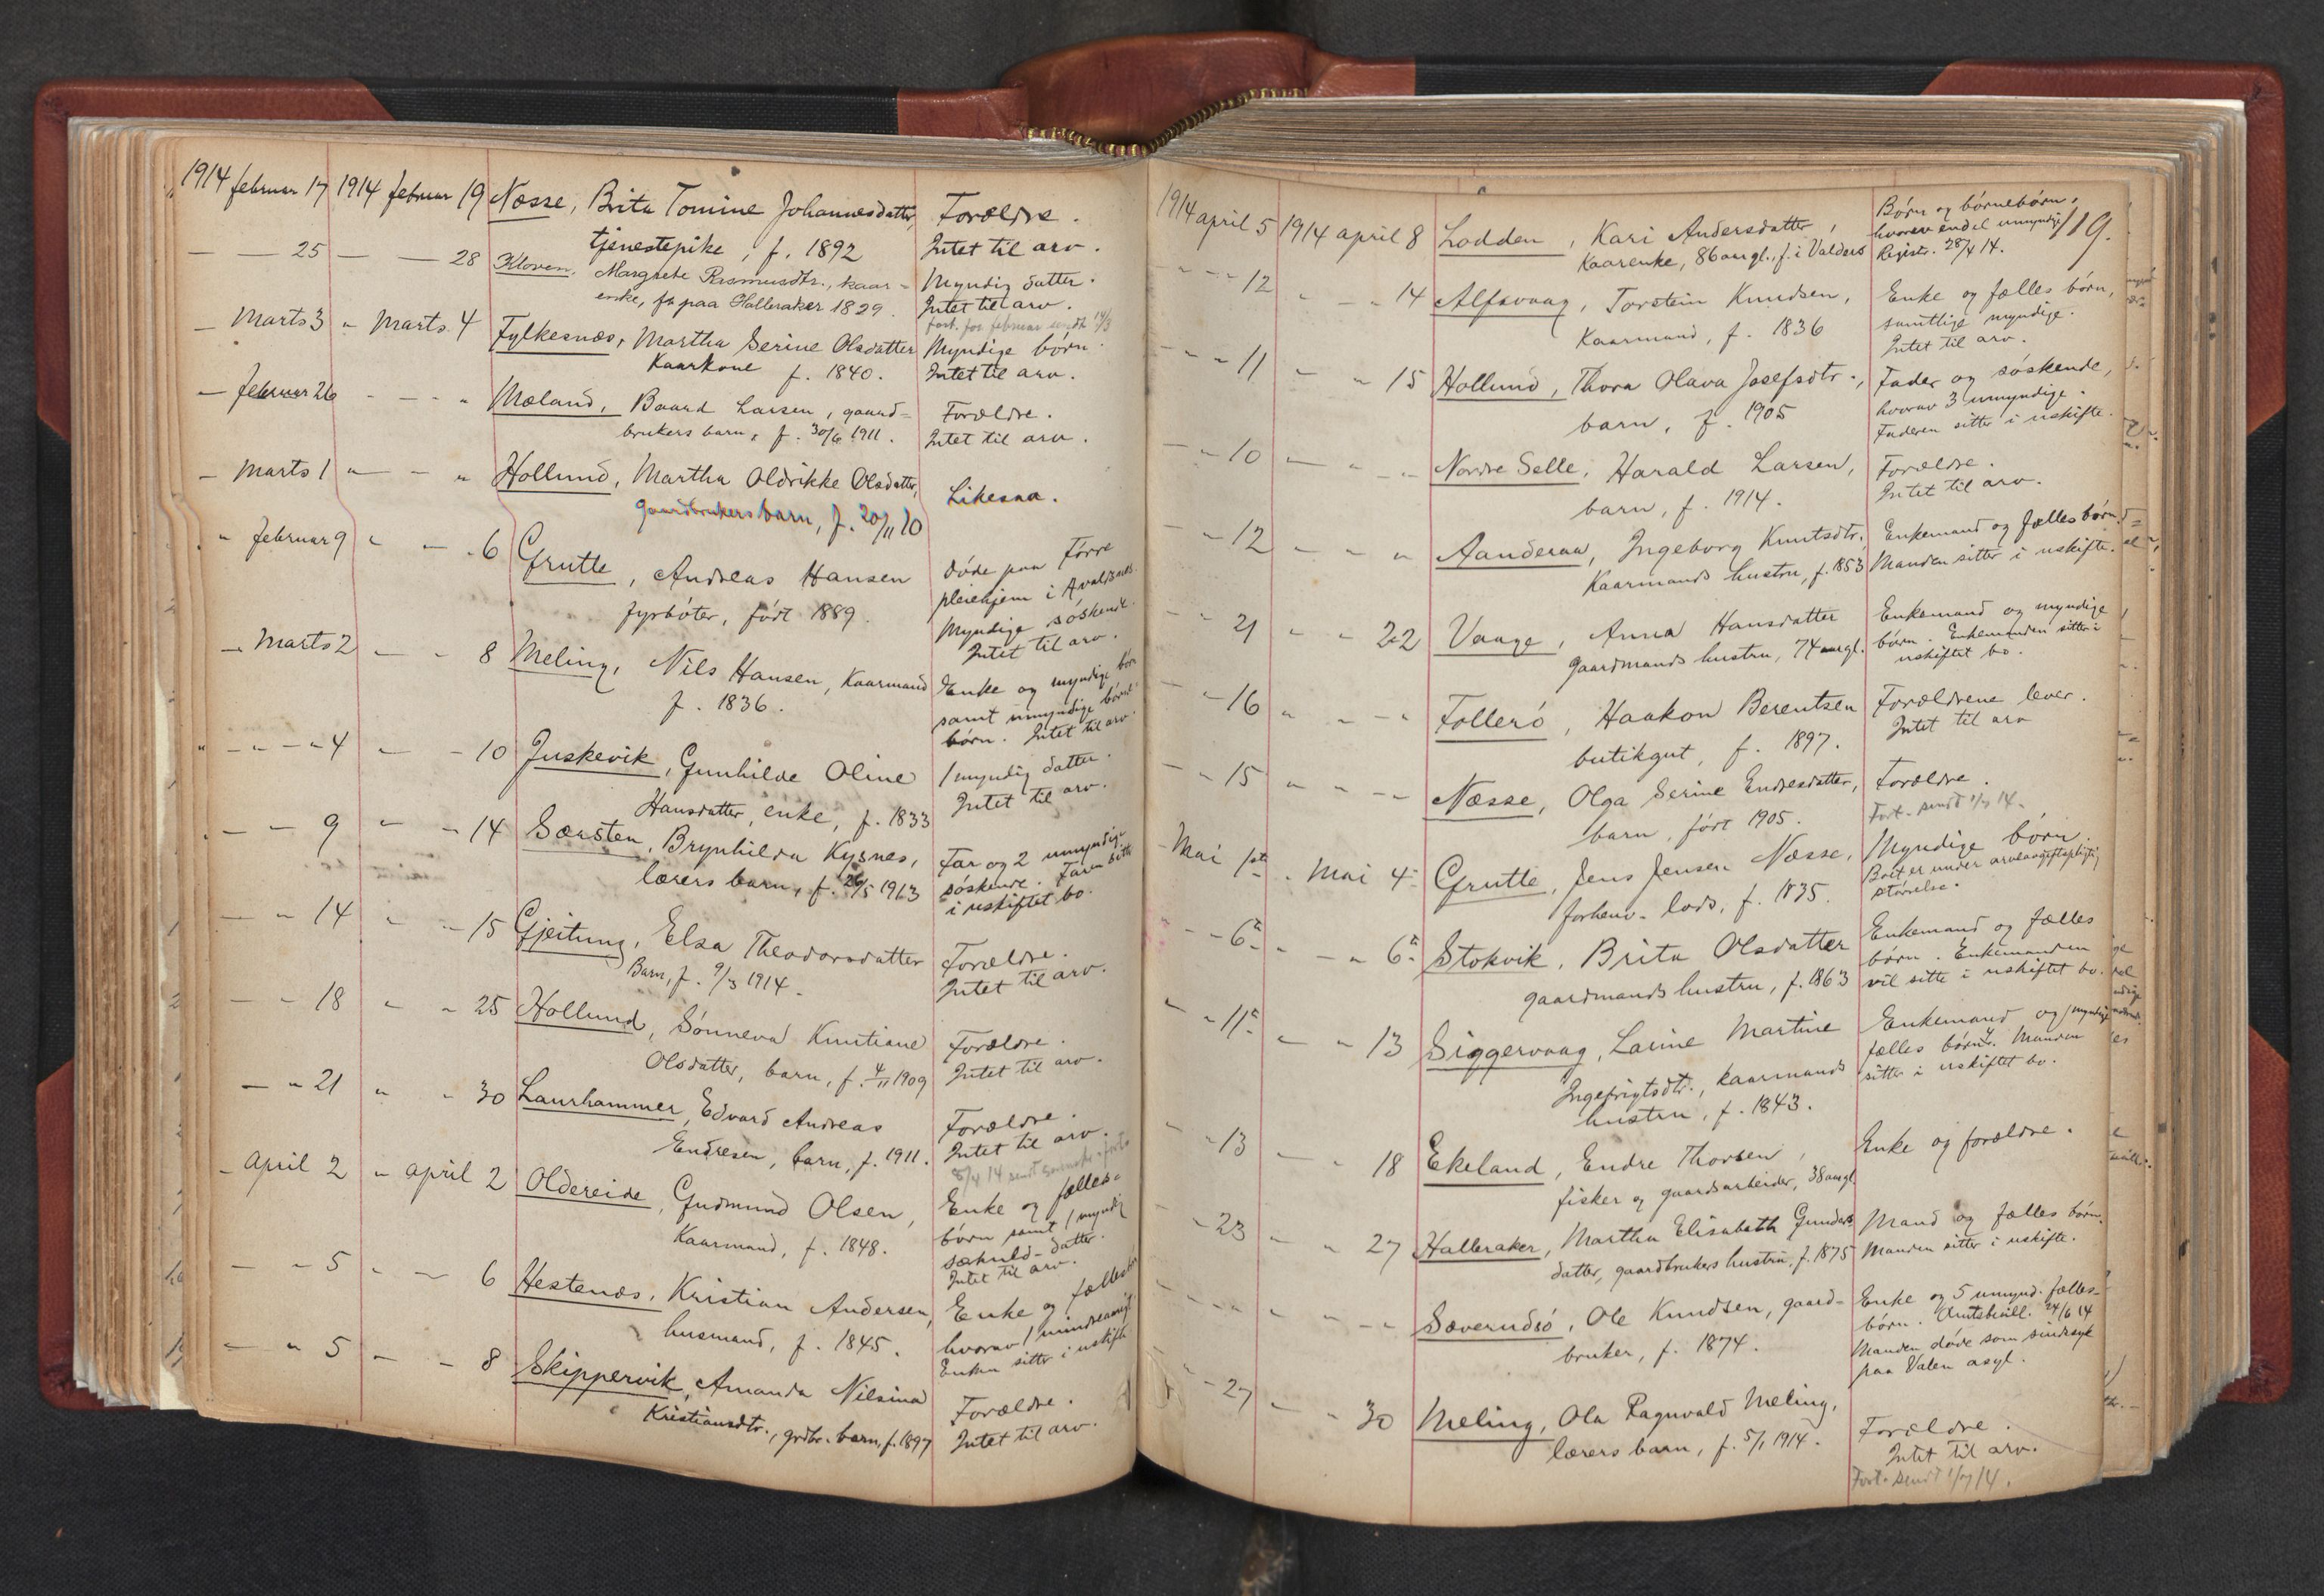 1914 februar 17 1914 februar 19 Næsse, Brita Tomine Johannesdatter, Forældre.
tjenestepike, f. 1892 Intet til arv.
— — 25 — — 28 Kloven, Margrete Rasmusdtr., kaar- Myndig datter.
enke, f. paa Halleraker 1829. Intet til arv.
fort. for februar sendt 14/3
— Marts 3 " Marts 4 Fylkesnæs, Martha Serine Olsdatter Myndige børn.
Kaarkone f. 1840. Intet til arv.
— februar 26 - - - " Mæland, Baard Larsen, gaard= Forældre.
brukers barn, f. 30/6 1911. Intet til arv.
— Marts 1 " — " Hollund, Martha Oldrikke Olsdatter, Likesaa.
gaardbrukers barn, f. 20/11 10
" februar 9 " — - 6 Grutle, Andreas Hansen døde paa Førre
fyrbøter, født 1889. pleiehjem i Avaldsnes.
Myndige søskende.
Intet til arv.
— Marts 2 — — - 8 Meling, Nils Hansen, Kaarmand Enke og myndige børn
f. 1836. samt umyndige børne
børn. Intet til arv.
" - " - " 4 — — 10 Juskevik, Gunhilde Oline 1 myndig datter.
Hansdatter, enke, f. 1833 Intet til arv.
- — - 9 " - 14 Særsten, Brynhilda Kysnes, Far og 2 umyndige
lærers barn, f. 26/5 1913 søskende. Faren sitter
i uskiftet bo.
— " 14 " - - 15 Gjeitung, Elsa Theodorsdatter Forældre.
Barn, f. 9/3 1914. Intet til arv.
— - 18 " " 25 Hollund, Sønneva Knutiane Forældre.
Olsdatter, barn, f. 4/11 1909 Intet til arv.
— " 21 " - 30 Laurhammer, Edvard Andreas Forældre.
Endresen, barn, f. 1911. Intet til arv.
8/4 14 sendt
- April 2 " april 2 Oldereide, Gudmund Olsen, Enke og fælles=
Kaarmand, f. 1848. børn samt 1 myndig
datter.
Intet til arv.
— - " 5 - — 6 Hestenæs, Kristian Andersen, Enke og fællesbørn
husmand, f. 1845. hvorav 1 mindreaarig.
Enken sitter i uskifte
— " 5 — - 8 Skippervik, Amanda Nilsina Forældre.
Kristiansdtr., grdbr. barn, f. 1897 Intet til arv.
119.
1914 april 5 1914 april 8 Lodden, Kari Andersdatter, Børn og børnebørn,
Kaarenke, 86 aar gl., f. i Valders hvorav endel umyndige
Registr. 28/4 14.
" - - 12 " - " 14 Alfsvaag, Torstein Knudsen, Enke og fælles børn,
Kaarmand, f. 1836 samtlige myndige.
Intet til arv.
- - " 11 — " 15 Hollund, Thora Olava Josefsdtr., Fader og søskende,
barn, f. 1905 hvorav 3 umyndige.
Faderen sitter i uskifte.
— - 10 — " - - Nordre Selle, Harald Larsen, Forældre.
barn, f. 1914. Intet til arv.
- - 12 — - " " Aanderaa, Ingeborg Knutsdtr., Enkemand og fælles børn.
Kaarmands hustru, f. 1853 Manden sitter i uskifte.
- - 21 " " 22 Vaage, Anna Hansdatter Enkemand og myndige
gaardmands hustru, 74 aar gl. børn. Enkemanden sitter i
uskiftet bo.
- - 16 " - - " Follerö, Haakon Berentsen Forældrene lever.
butikgut, f. 1897. Intet til arv
- - 15 " " - - Næsse, Olga Serine Endresdatter, Forældre.
barn, født 1905. Fort. sendt 1/5 14.
Mai 1ste " Mai 4- Grutle, Jens Jensen Næsse, Myndige børn.
forhenv. lods, f. 1835. Boet er under arveavgiftspligtig
størrelse.
- - 6- - — " 6- Stokvik, Brita Olsdatter Enkemand og fælles
gaardmands hustru, f. 1863 børn. Enkemanden
vil sitte i uskiftet bo.
" - 11- — - " 13 Siggervaag, Larine Martine Enkemand og 1 myndige
Ingefrigtsdtr., kaarmands fælles børn. Manden
hustru, f. 1843. sitter i uskiftet bo.
- - 13 — - 18 Ekeland, Endre Thorsen, Enke og forældre.
fisker og gaardsarbeider, 38 aar gl.
- - 23 — " 27 Halleraker, Martha Elisabeth Gunders Mand og fælles børn.
datter, gaardbrukers hustru, f. 1875 Manden sitter i uskifte.
- - - - " - - - Sæverudsö, Ole Knudsen, gaard- Enke og 5 umynd. fælles-
bruker, f. 1874. børn. Amtsbevill. 24/6 14
Manden døde som sindssyk
paa Valen asyl.
" - 27 — - 30 Meling, Ola Ragnvald Meling, Forældre.
lærers barn, f. 5/1 1914. Intet til arv.
Fort. sendt 1/7 14.